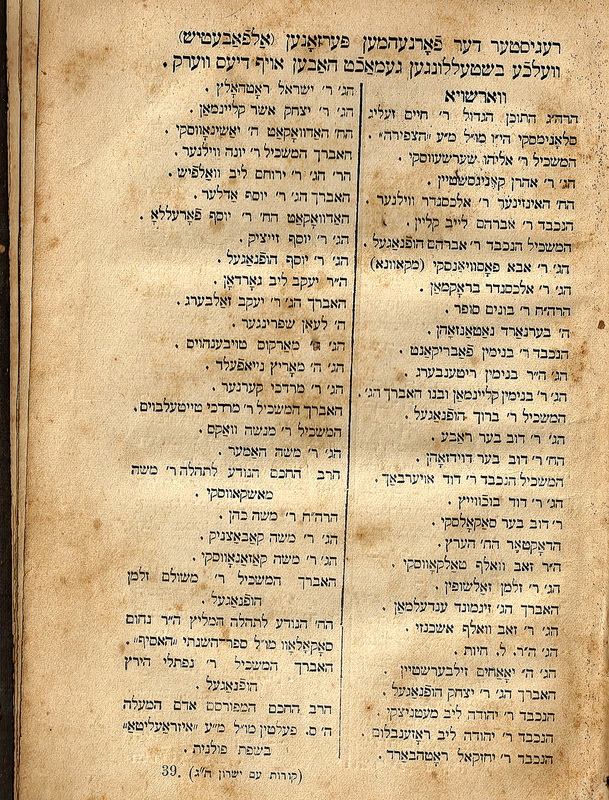 רעגיסטער דער פֿאָרנעהמען פּערזאָגען (אַלפֿאַבעטיש)
וועלכע בשטעללונגען געמאַכט האָבען אויף דיעס ווערק.
ווארשויא
הרה״ג התוכן הגדול ר׳ חיים זעליג
סלאָנימסקי הי״ו מו״ל מ״ע ״הצפירה״.
המשכיל ר׳ אליהו שערשעווסקי.
הג׳ ר׳ אהרן קאָנינסשטיין.
הח׳ האינזינער ר׳ אלכסנדר ווילנער.
הנכבד ר׳ אברהם לייב קליין.
המשכיל הנכבד ר׳ אברהם הופֿנאַגעל.
הג׳ ר׳ אבא פּאָסוויאַנסקי (מקאוונא)
הג׳ ר׳ אלכסנדר בראָקמאַן.
הרה״ח ר׳ בונים סופר.
ה׳ בערנארד נאַטאַנזאָהן.
הנכבד ר׳ בנימין פֿאַבריקאַנט.
הג׳ ה״ר בנימין ריטענבערג.
הג׳ ר׳ בנימין קליינמאן ובנו האברך הג׳.
המשכיל ר׳ ברוך הופֿנאַגעל.
הג׳ ר׳ דוב בער ראָבע.
הח׳ ר׳ דוב בער דוידזאָהן.
המשכיל הנכבד ר׳ דוד אויערבאך.
הג׳ ר׳ דוד בוכווייץ.
ר׳ דוב בער סאָקאָלסקי.
הדאָקטאָר הח׳ הערץ.
ה״ר זאב וואלף טאלקאָווסקי.
הג׳ ר׳ זלמן זאַלשופין.
האברך הג׳ זיגמונד ענדעלמאַן.
הג׳ ר׳ זאב וואלף אשכנזי.
הג׳ ה״ר. ל. חיות.
הג׳ ה׳ יאָאַחים זילבערשטיין.
האברך הג׳ ר׳ יצחק הופֿנאַגעל.
הנכבד ר׳ יהודה ליב מעטניצקי.
הנכבד ר׳ יהודה ליב ראָזענבלום.
הנכבד ר׳ יחזקאל ראָטהבאַרד.
הג׳ ר׳ ישראל ראָטהאָלץ.
הג׳ ר׳ יצחק אשר קליינמאַן.
הח׳ האַדוואָקאַט ה׳ יאַשינאָווסקי.
האברך המשכיל ר׳ יונה ווילנער.
הר׳ הג׳ ר׳ ירוחם ליב וואָלפֿיש.
האברך הג׳ ר׳ יוסף אַדלער.
האַדוואָקאַט הח׳ ר׳ יוסף פֿאָרעללאַ.
הג׳ ר׳ יוסף זייציק.
הג׳ ר׳ יוסף הופֿנאַגעל.
ה״ר יעקב ליב גאָרדאָן.
האברך הג׳ ר׳ יעקב זאַלבערג.
ה׳ לעאָן שפרינגער.
הג׳ ה׳ מאַרקוס טויבענהויס.
הג׳ ה׳ מאָריץ נייאַפֿעלד.
הג׳ ר׳ מרדכי קערנער.
האברך המשכיל ר׳ מרדכי טייטעלבוים.
המשכיל ר׳ מנשה וואַקס.
הג׳ ר׳ משה האַמער.
הרב החכם הנודע לתהלה ר׳ משה
מאשקאווסקי.
הרה״ח ר׳ משה כהן.
הג׳ ר׳ משה קאַבאַצניק.
הג׳ ר׳ משה קאַזאַנאָווסקי.
האברך המשכיל ר׳ משולם זלמן
הופֿנאַגעל.
הח׳ הנודע לתהלה המליץ ה״ר נחום
סאָקאָלאָוו מו״ל ספר השנתי ״האסיף״.
האברך המשכיל ר׳ נפתלי הירץ
הופֿנאַגעל.
הרב החכם המפורסם אדם המעלה
ה׳ ס. פעלטין מו״ל מ״ע ״איזראעליטא״
בשפת פולנית.
(קורות עם ישרון ח״ג) 39.